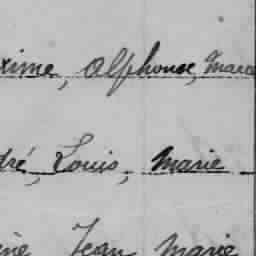 xime, Alphonse, Marce
dré, Louis, Marie
ène Jean Marie